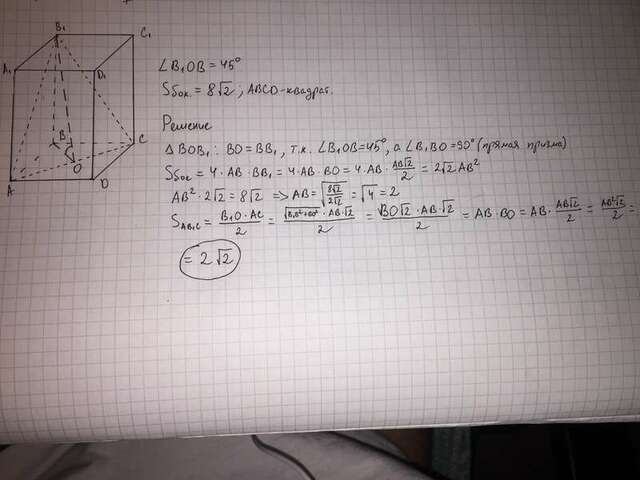 B₁
C₁
A₁
D₁
B
C
O
A
D
∠B₁OB = 45°
Sбок. = 8√2 ; ABCD - квадрат.
Решение
△ BOB₁ : BO = BB₁ , т.к. ∠B₁OB=45°, а ∠B₁BO=90° (прямая призма)
Sбок = 4 · AB · BB₁ = 4 · AB · BO = 4 · AB · AB√2/2 = 2√2 AB²
AB² · 2√2 = 8√2 => AB = √(8√2/2√2) = √4 = 2
S_AB₁C = B₁O · AC/2 = √(B₁B²+BO²) · AB·√2/2 = BO√2 · AB√2/2 = AB · BO = AB · AB√2/2 = AB²√2/2 =
= 2√2